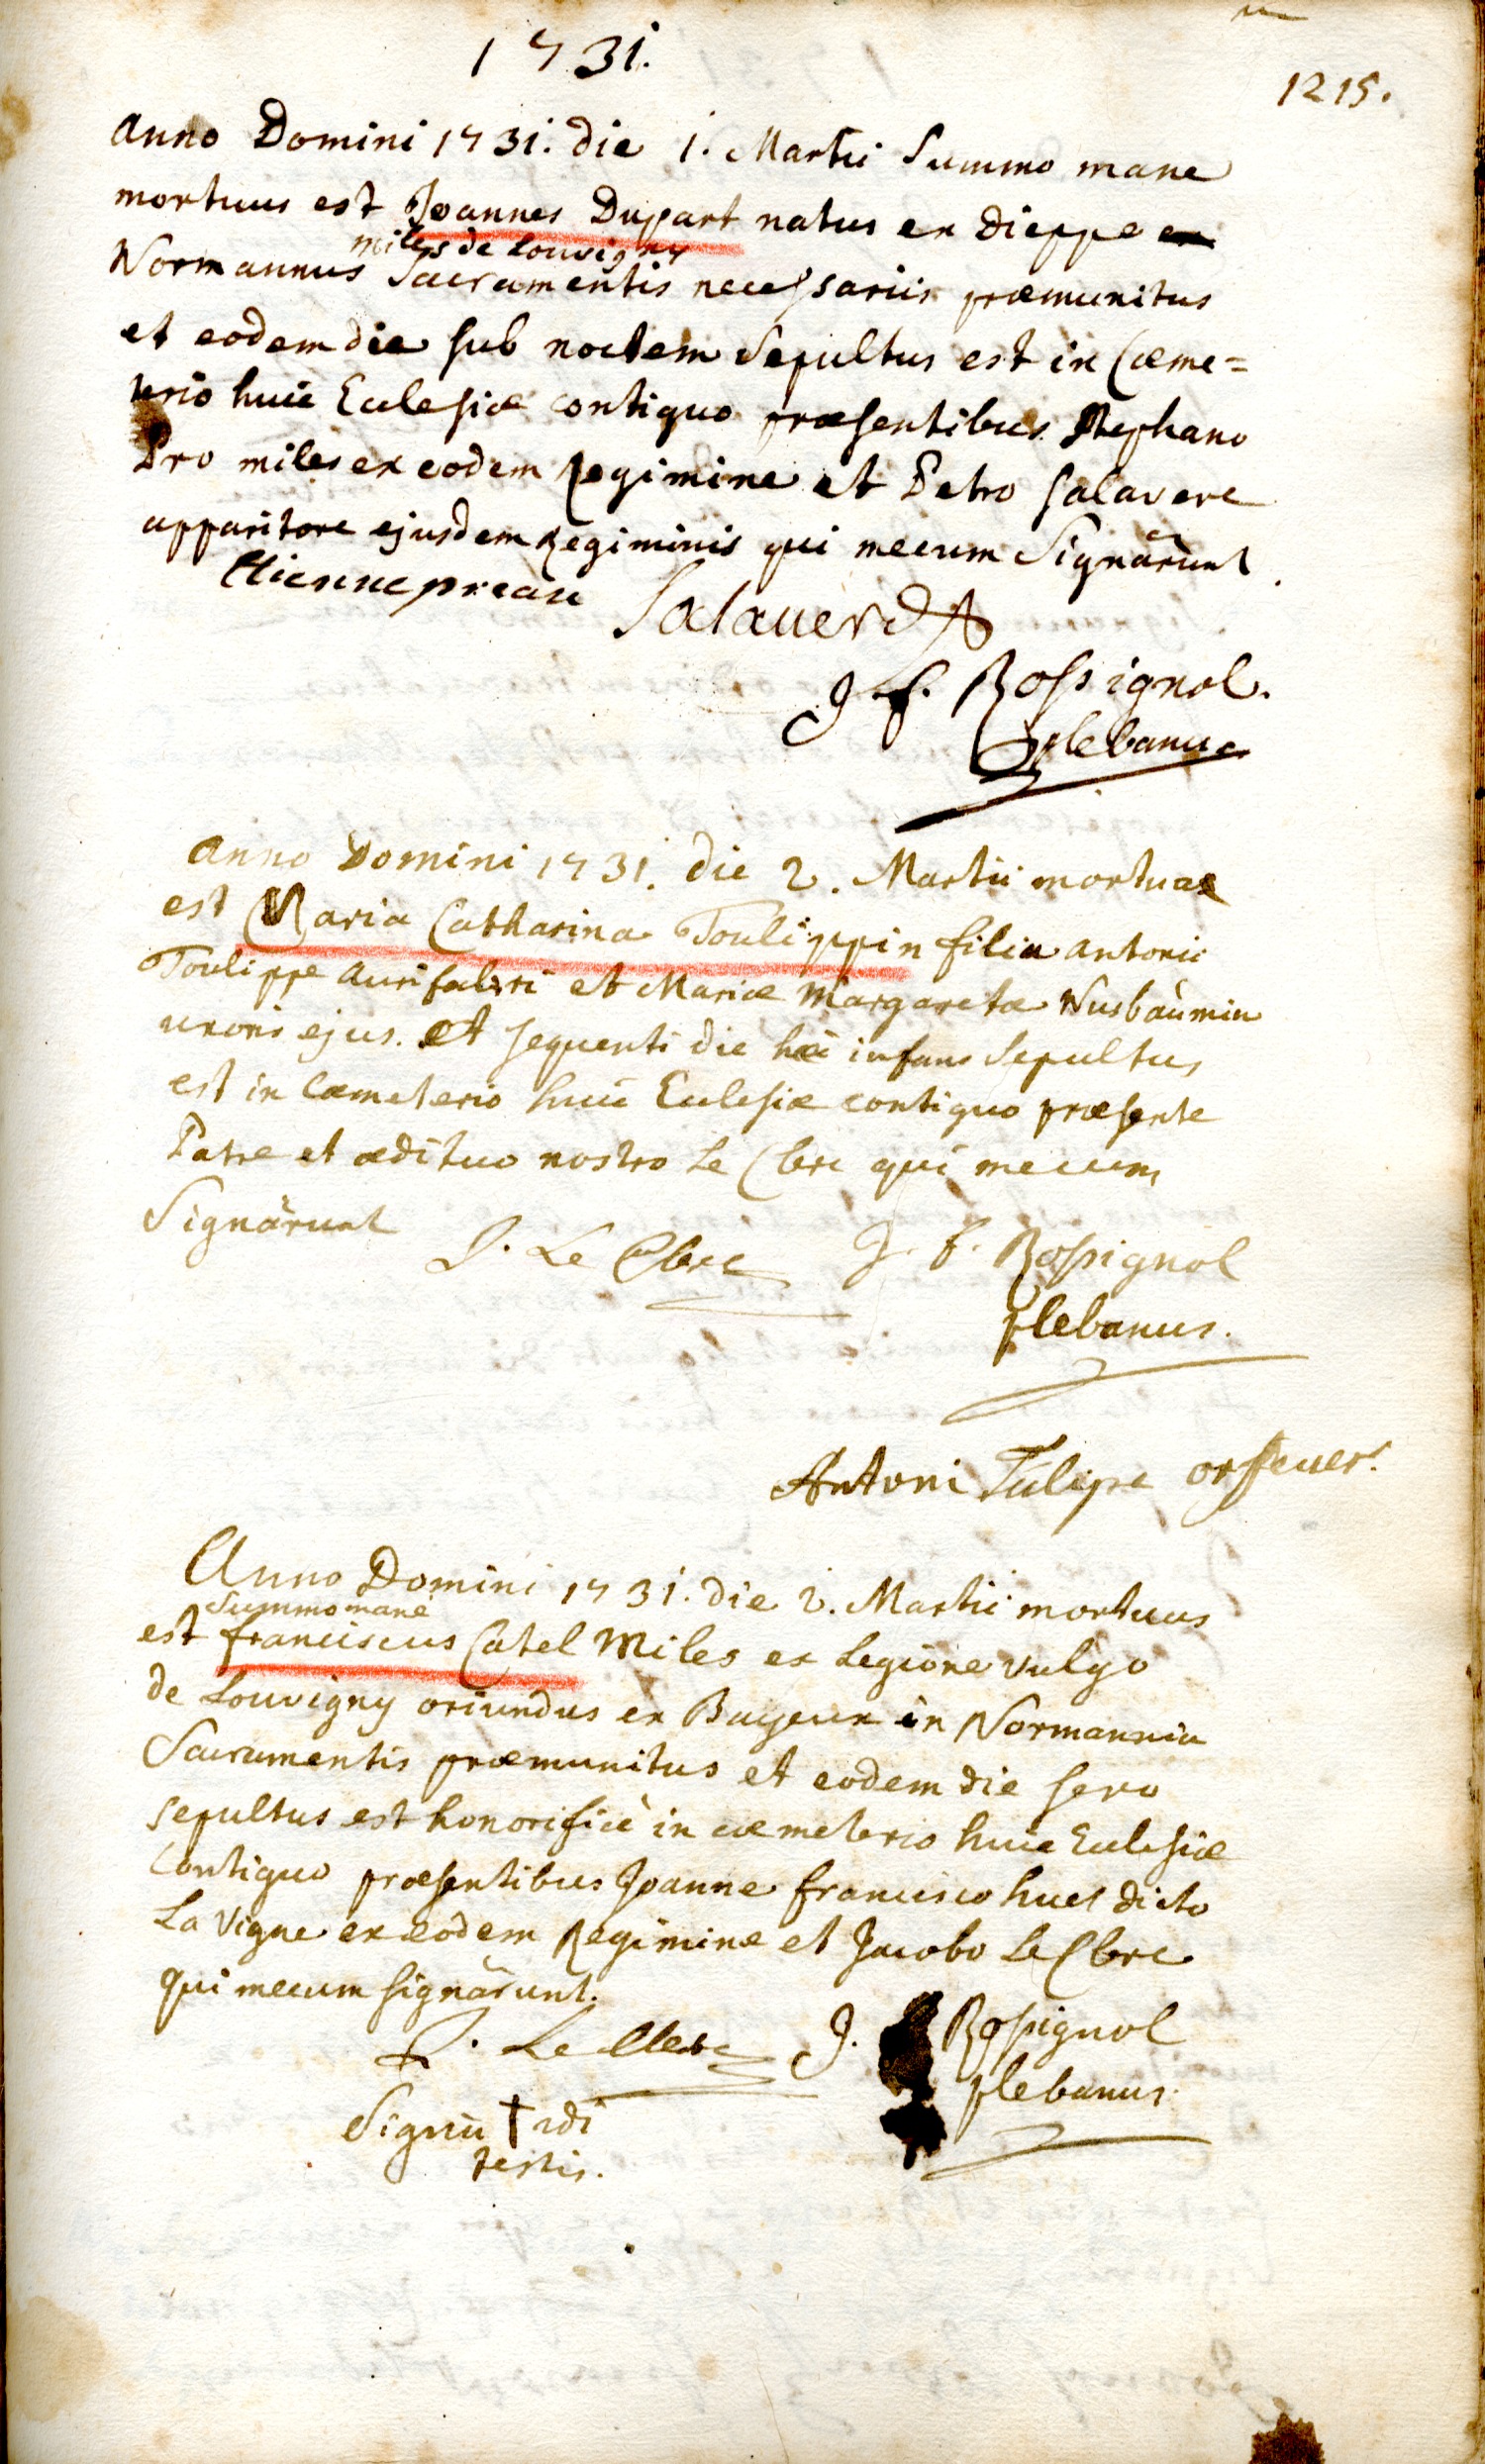 1731.
1215.
Anno Domini 1731. die 1. Martii Summo mane
mortuus est Joannes Dupart natus ex Dieppe
miles de Louvigny
Normannus Sacramentis necessariis præmunitus
et eodem die sub noctem Sepultus est in Cœme=
terio huic Ecclesiæ contiguo præsentibus Stephano
Pro miles ex eodem Regimine et Petro Salavere
apparitore ejusdem Regiminis qui mecum Signârunt
Etienne
Salauerd
J. f. Rossignol.
plebanus
Anno Domini 1731. die 2. Martii mortua
est Maria Catharina Toulippin filia Antonii
Toulippe Aurifabri et Mariæ Margaretæ Nusbaùmin
uxoris ejus. Et sequenti die hæc infans Sepultus
est in Cœmeterio huic Ecclesiæ contiguo præsente
Patre et ædituo nostro Le Clerc qui mecum
Signârunt
J. Le Clerc
J. f. Rossignol
plebanus.
Antoni Tulipe orfeuer.
Anno Domini 1731. die 2. Martii mortuus
Summo mane
est franciscus Catel Miles ex Legione vulgo
de Louvigny oriundus ex Bayeux in Normannia
Sacramentis præmunitus et eodem die sero
sepultus est honorificè in cœmeterio huic Ecclesiæ
Contiguo præsentibus Joanne francisco huet dicto
La Vigne ex eodem Regimine et Jacobo Le Clerc
qui mecum signârunt.
J. Le Clerc
J. Rossignol
plebanus.
Signū † 2di
testis.